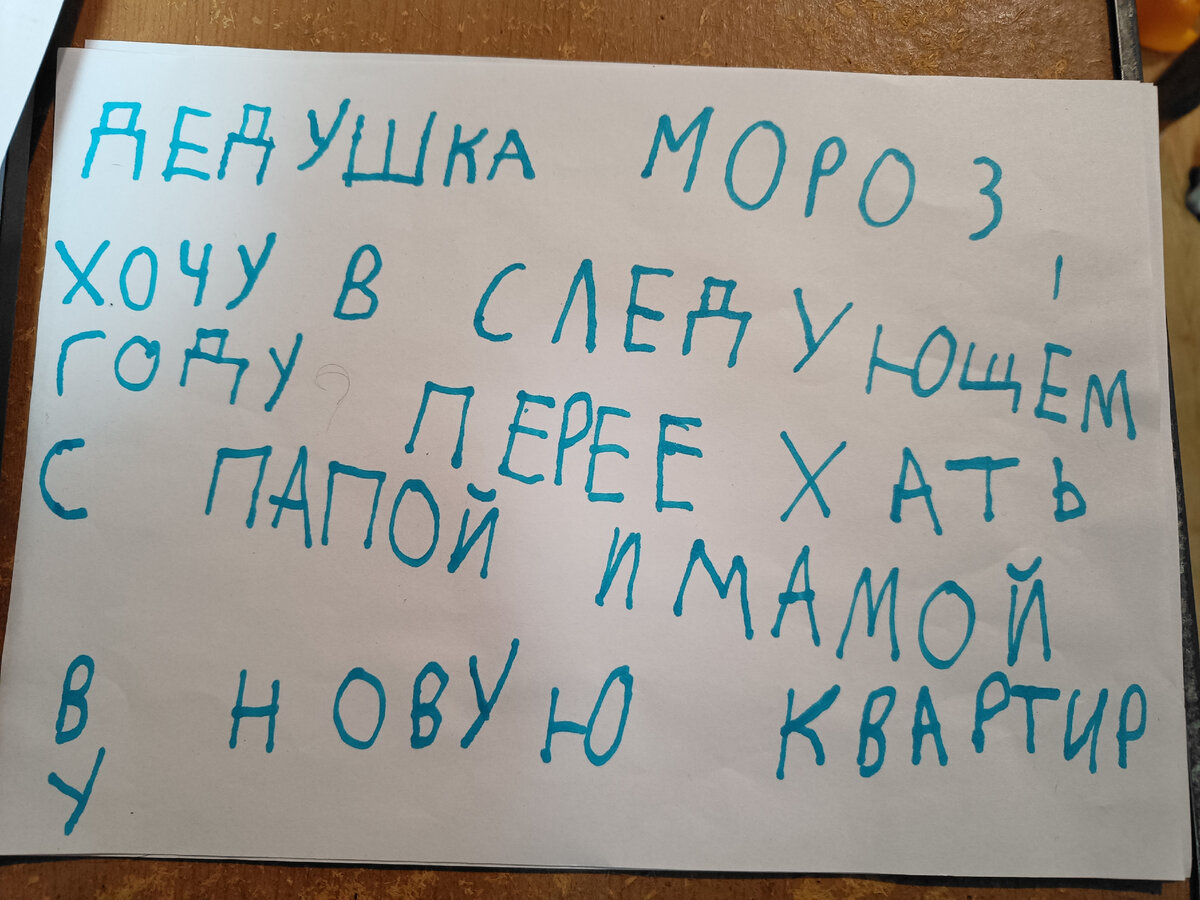 ДЕДУШКА МОРОЗ
ХОЧУ В СЛЕДУЮЩЕМ
ГОДУ ПЕРЕЕХАТЬ
С ПАПОЙ И МАМОЙ
В НОВУЮ КВАРТИР
У